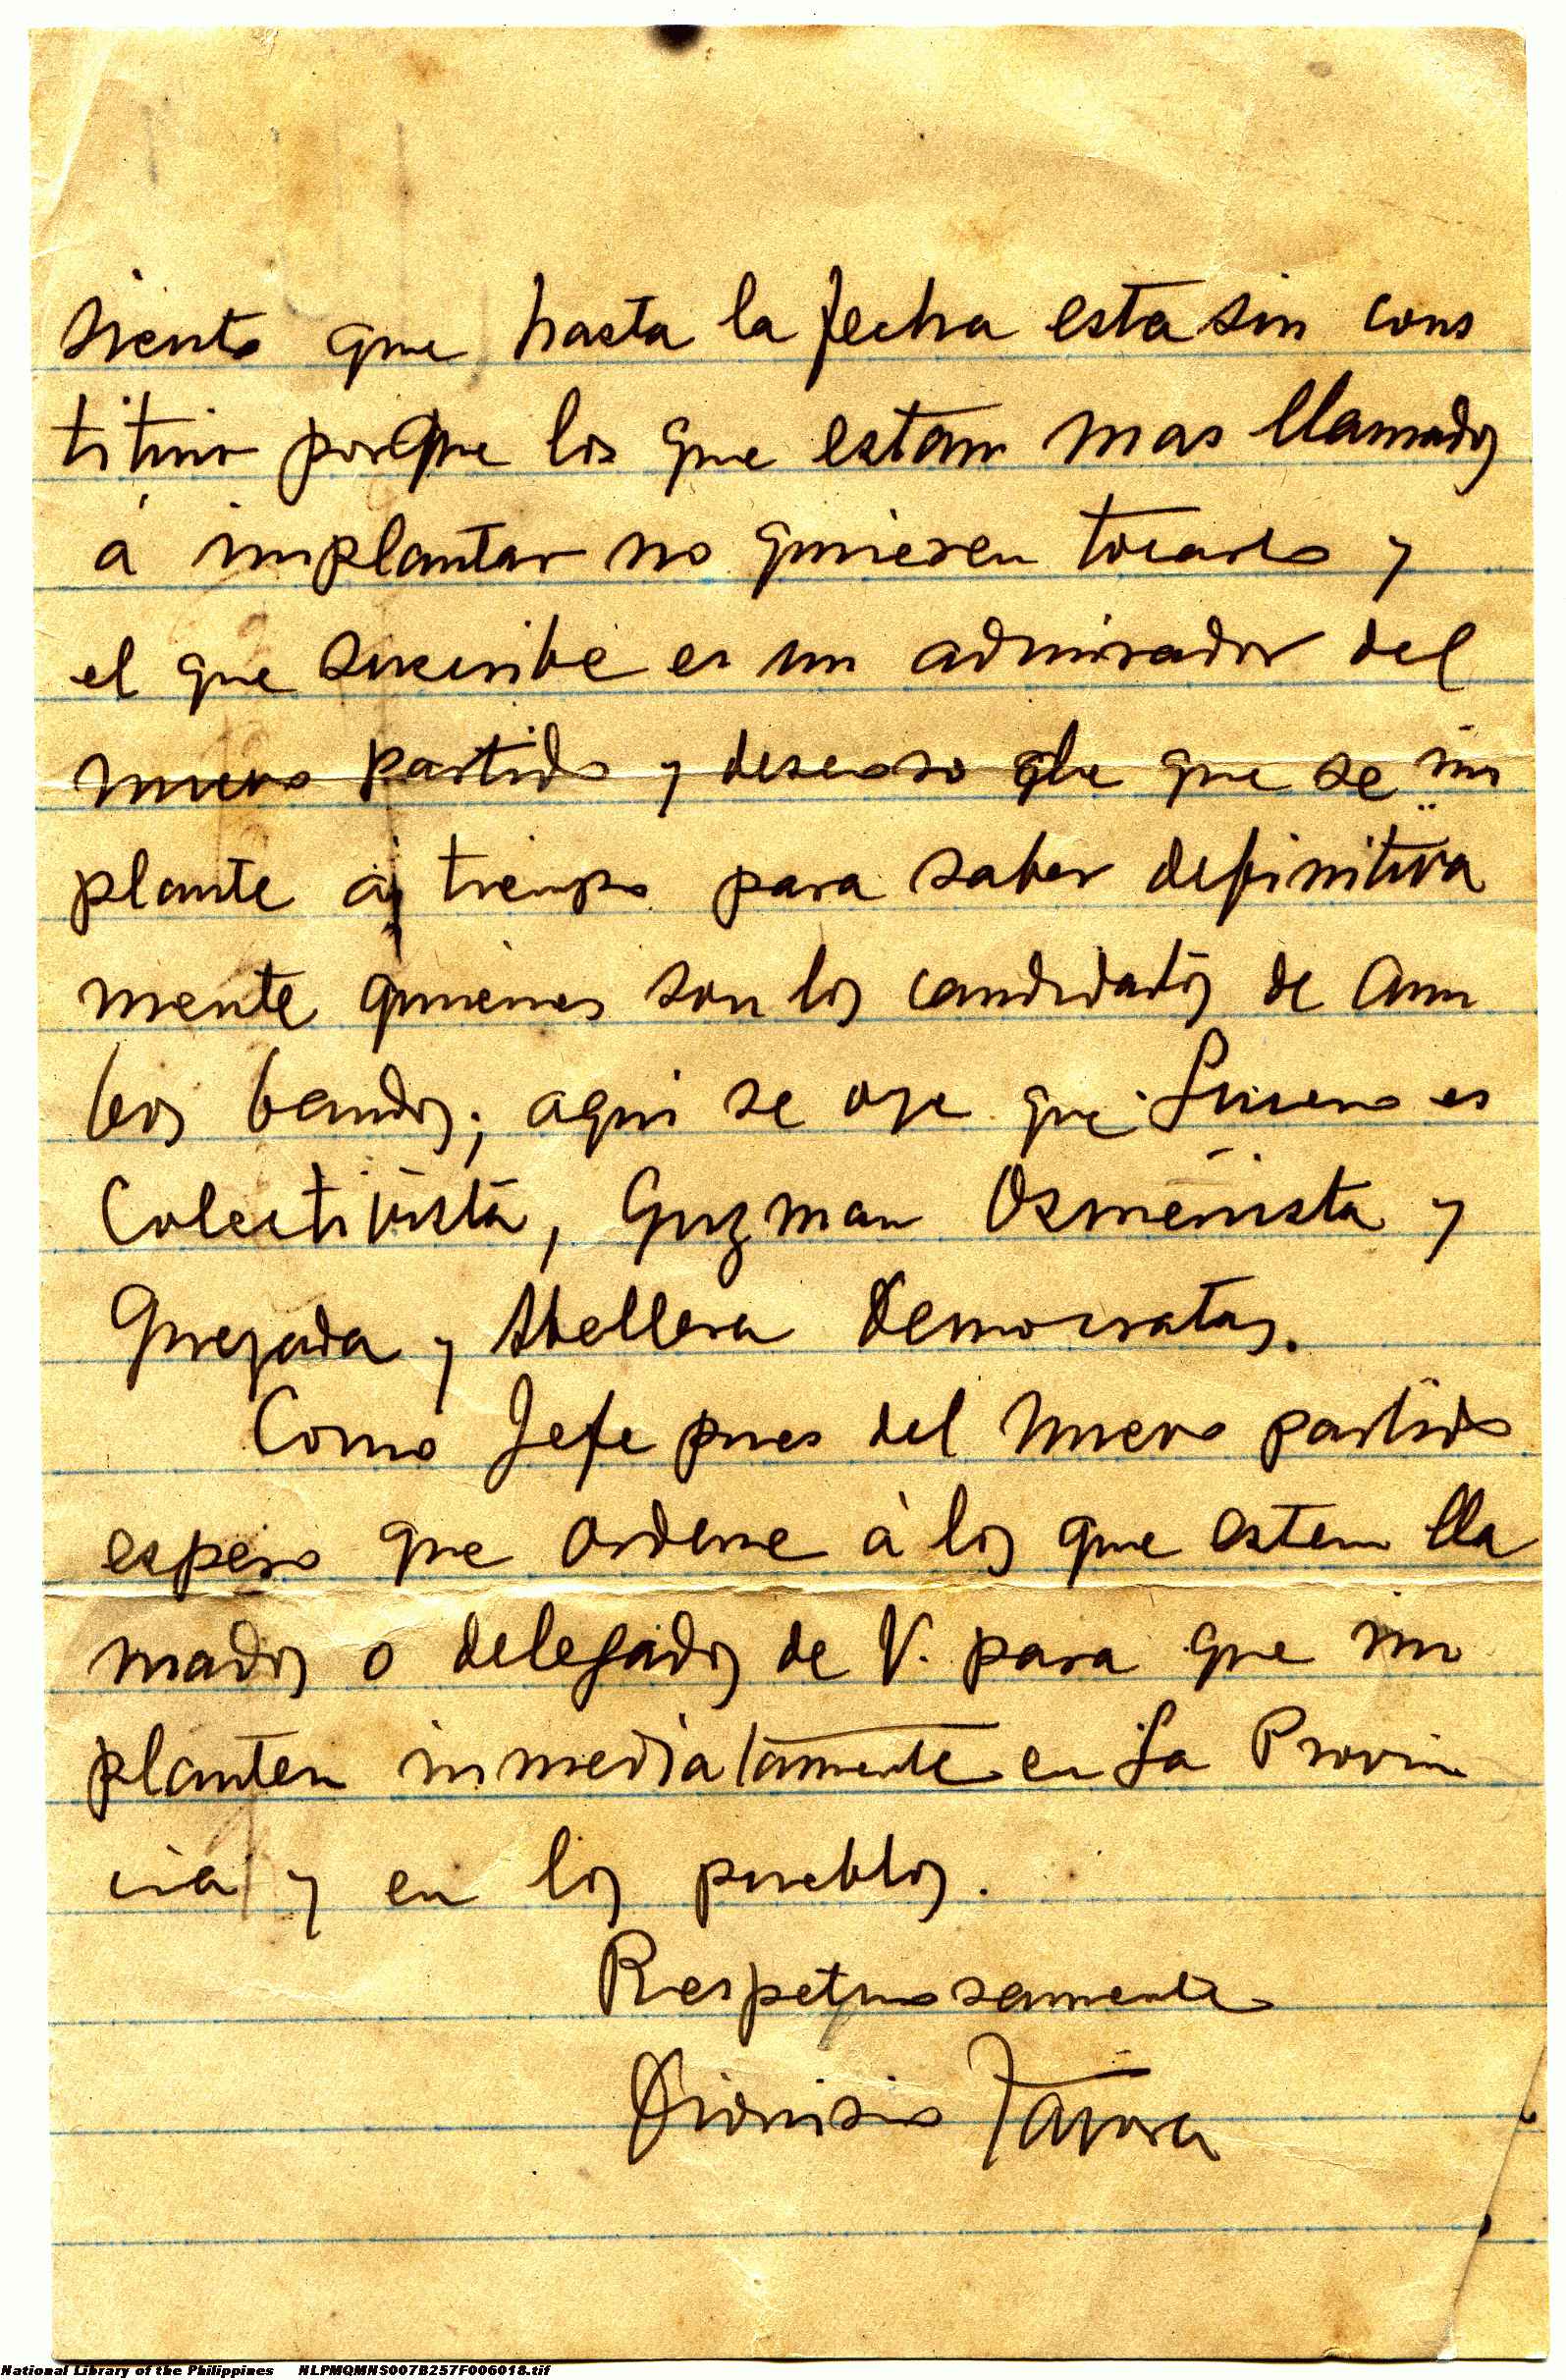 siento que hasta la fecha esta sin cons
tituir porque los que estan mas llamados
á implantar no quieren tocarlo y
el que suscribe es un admirador del
nuevo partido y deseoso de que se im
plante á tiempo para saber definitiva
mente quienes son los candidatos de am
bos bandos; aqui se oye que Lucero es
Colectivista, Guzman Osmeñista y
Quezada y Abellera Democratas.
Como Jefe pues del nuevo partido
espero que ordene á los que esten lla
mados o delegados de V. para que im
planten inmediatamente en La Provin
cia y en los pueblos.
Respetuosamente
Dionisio Tayora
National Library of the Philippines NLPMQMNS007B257F006018.tif